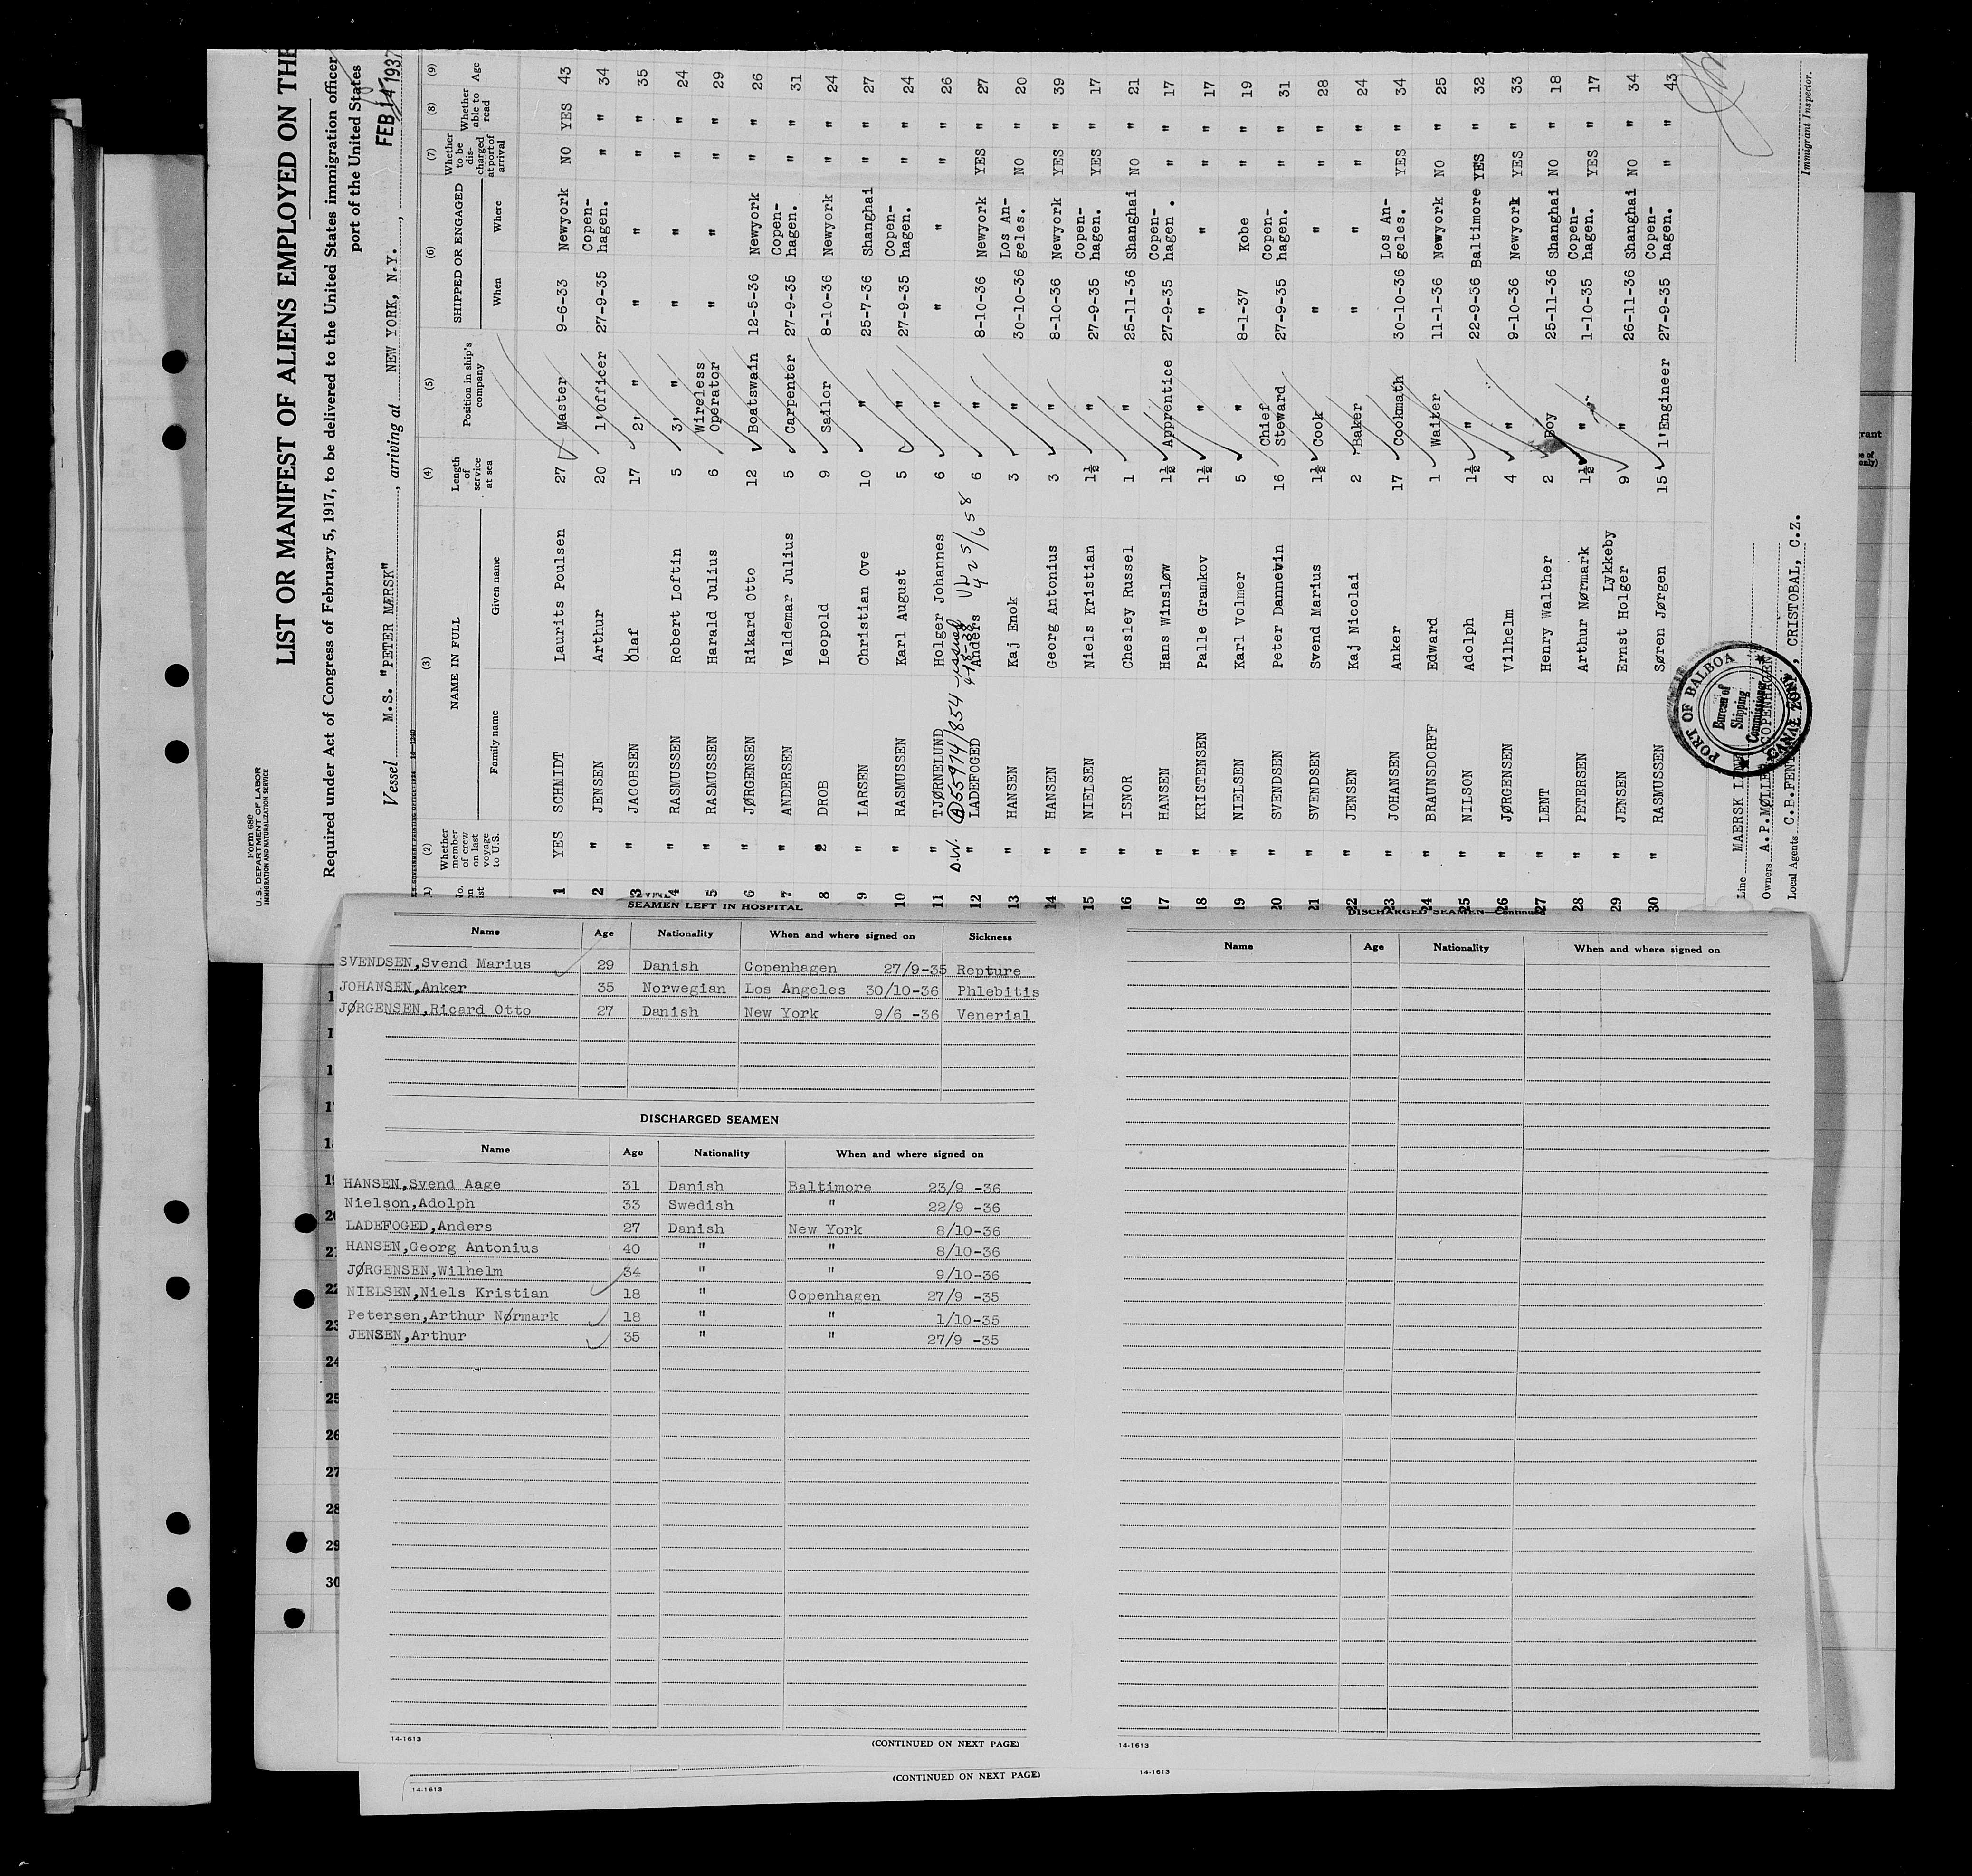 Form 680
U.S. DEPARTMENT OF LABOR
IMMIGRATION AND NATURALIZATION SERVICE
LIST OR MANIFEST OF ALIENS EMPLOYED ON THE
Required under Act of Congress of February 5, 1917, to be delivered to the United States immigration officer
port of the United States
Vessel M.S. "PETER MÆRSK", arriving at NEW YORK, N.Y., FEB 14 1937
(1) (2) (3) (4) (5) (6) (7) (8) (9)
Whether member of crew on last voyage to U.S. NAME IN FULL Family name Given name Length of service at sea Position in ship's company SHIPPED OR ENGAGED When Where Whether to be discharged at port of arrival Whether able to read Age
1 YES SCHMIDT Laurits Poulsen 27 Master 9-6-33 Newyork NO YES 43
2 " JENSEN Arthur 20 1'Officer 27-9-35 Copen-hagen. " " 34
3 " JACOBSEN Olaf 17 2, " " " " " 35
4 " RASMUSSEN Robert Loftin 5 3, " " " " " 24
5 " RASMUSSEN Harald Julius 6 Wireless Operator " " " " 29
6 " JØRGENSEN Rikard Otto 12 Boatswain 12-5-36 Newyork " " 26
7 " ANDERSEN Valdemar Julius 5 Carpenter 27-9-35 Copen-hagen. " " 31
8 " DROB Leopold 9 Sailor 8-10-36 Newyork " " 24
9 " LARSEN Christian Ove 10 " 25-7-36 Shanghai " " 27
10 " RASMUSSEN Karl August 5 " 27-9-35 Copen-hagen. " " 24
11 " TJØRNELUND Holger Johannes 6 " " " " " 26
D.W. 55974/854 issued 4-18-38 VL 425/658
12 " LADEFOGED Anders 6 " 8-10-36 Newyork YES " 27
13 " HANSEN Kaj Enok 3 " 30-10-36 Los An-geles. NO " 20
14 " HANSEN Georg Antonius 3 " 8-10-36 Newyork YES " 39
15 " NIELSEN Niels Kristian 1½ " 27-9-35 Copen-hagen. YES " 17
16 " ISNOR Chesley Russel 1 " 25-11-36 Shanghai NO " 21
17 " HANSEN Hans Winsløw 1½ Apprentice 27-9-35 Copen-hagen. " " 17
18 " KRISTENSEN Palle Gramkov 1½ " " " " " 17
19 " NIELSEN Karl Volmer 5 " 8-1-37 Kobe " " 19
20 " SVENDSEN Peter Dannevin 16 Chief Steward 27-9-35 Copen-hagen. " " 31
21 " SVENDSEN Svend Marius 1½ Cook " " " " 28
22 " JENSEN Kaj Nicolai 2 Baker " " " " 24
23 " JOHANSEN Anker 17 Cookmath 30-10-36 Los An-geles. YES " 34
24 " BRAUNSDORFF Edward 1 Waiter 11-1-36 Newyork NO " 25
25 " NILSON Adolph 1½ " 22-9-36 Baltimore YES " 32
26 " JØRGENSEN Vilhelm 4 " 9-10-36 Newyork YES " 33
27 " LENT Henry Walther 2 Boy 25-11-36 Shanghai NO " 18
28 " PETERSEN Arthur Nørmark 1½ " 1-10-35 Copen-hagen. YES " 17
29 " JENSEN Ernst Holger Lykkeby 9 " 26-11-36 Shanghai NO " 34
30 " RASMUSSEN Søren Jørgen 15 1'Engineer 27-9-35 Copen-hagen. " " 43
Line MAERSK LINE
Owners A.P.MØLLER COPENHAGEN
Local Agents C.B.FENTON, CRISTOBAL, C.Z.
Immigrant Inspector.
PORT OF BALBOA
Bureau of Shipping Commissioner
CANAL ZONE
SEAMEN LEFT IN HOSPITAL
Name Age Nationality When and where signed on Sickness
SVENDSEN,Svend Marius 29 Danish Copenhagen 27/9-35 Repture
JOHANSEN,Anker 35 Norwegian Los Angeles 30/10-36 Phlebitis
JØRGENSEN,Ricard Otto 27 Danish New York 9/6 -36 Venerial
DISCHARGED SEAMEN
Name Age Nationality When and where signed on
HANSEN,Svend Aage 31 Danish Baltimore 23/9 -36
Nielson,Adolph 33 Swedish " 22/9 -36
LADEFOGED,Anders 27 Danish New York 8/10-36
HANSEN,Georg Antonius 40 " " 8/10-36
JØRGENSEN,Wilhelm 34 " " 9/10-36
NIELSEN,Niels Kristian 18 " Copenhagen 27/9 -35
Petersen,Arthur Nørmark 18 " " 1/10-35
JENSEN,Arthur 35 " " 27/9 -35
14-1613
(CONTINUED ON NEXT PAGE)
DISCHARGED SEAMEN—Continued
Name Age Nationality When and where signed on
14-1613
14-1613
(CONTINUED ON NEXT PAGE)
14-1613
18
19
20
21
22
23
24
25
26
27
28
29
30